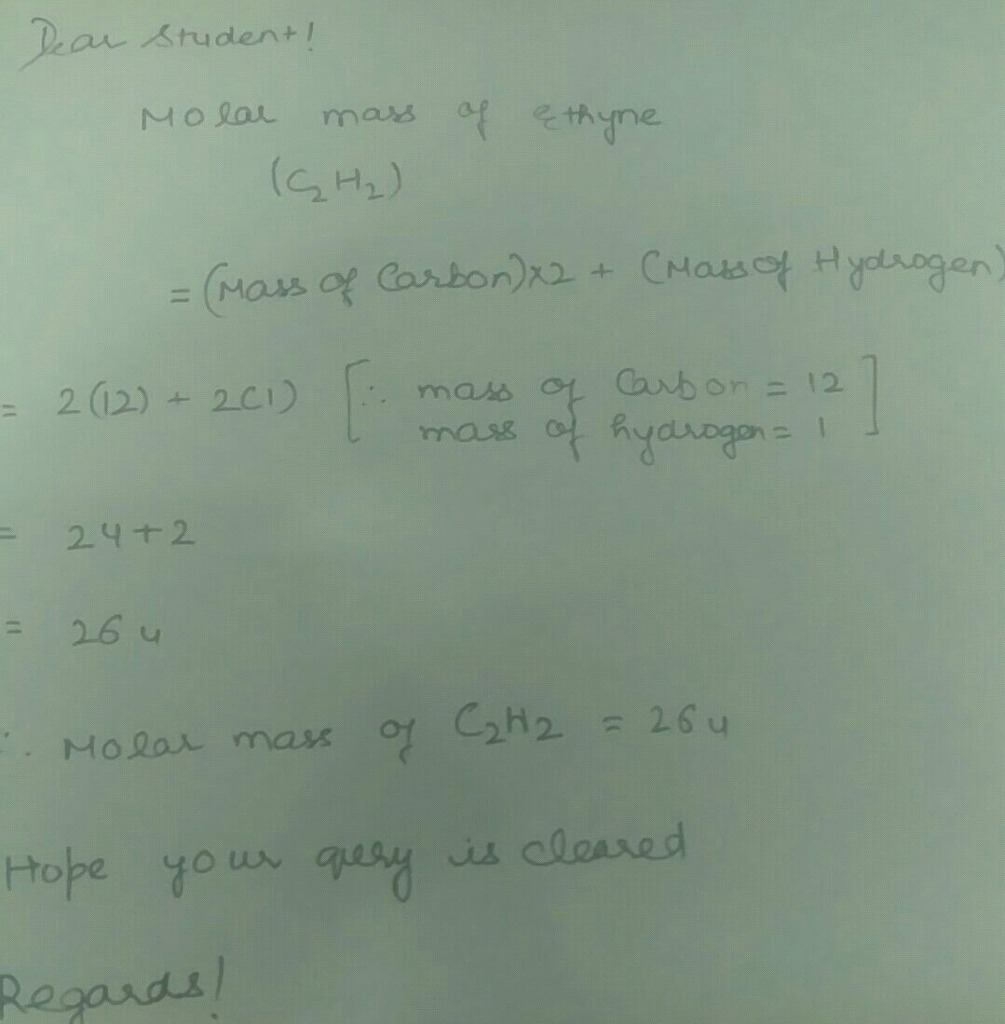 Dear Student!
Molar mass of Ethyne
(C₂H₂)
= (Mass of Carbon)x2 + (Mass of Hydrogen)
= 2(12) + 2(1) [∵ mass of Carbon = 12
mass of hydrogen = 1]
= 24+2
= 26 u
∴ Molar mass of C₂H₂ = 26 u
Hope your query is cleared
Regards!